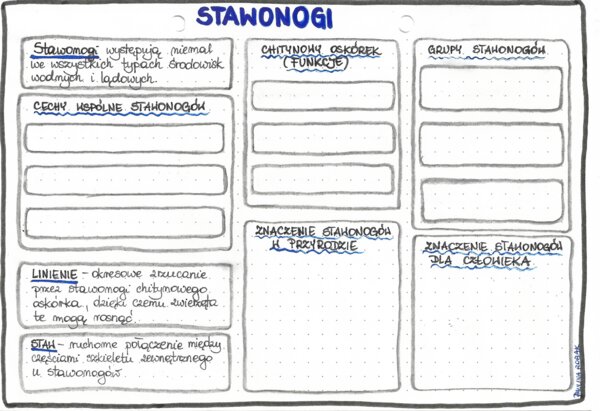 STAWONOGI
Stawonogi występują niemal
we wszystkich typach środowisk
wodnych i lądowych.
CECHY WSPÓLNE STAWONOGÓW
LINIENIE - okresowe zrzucanie
przez stawonogi chitynowego
oskórka, dzięki czemu zwierzęta
te mogą rosnąć.
STAW - ruchome połączenie między
częściami szkieletu zewnętrznego
u stawonogów
CHITYNOWY OSKÓREK
(FUNKCJE)
ZNACZENIE STAWONOGÓW
W PRZYRODZIE
GRUPY STAWONOGÓW
ZNACZENIE STAWONOGÓW
DLA CZŁOWIEKA